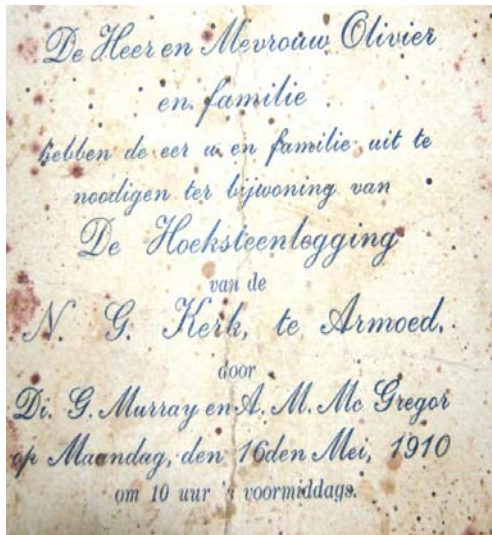 De Heer en Mevrouw Olivier
en familie
hebben de eer u en familie uit te
noodigen ter bijwoning van
De Hoeksteenlegging
van de
N. G. Kerk, te Armoed,
door
Di. G. Murray en A. M. Mc Gregor
op Maandag, den 16den Mei, 1910
om 10 uur 's voormiddags.